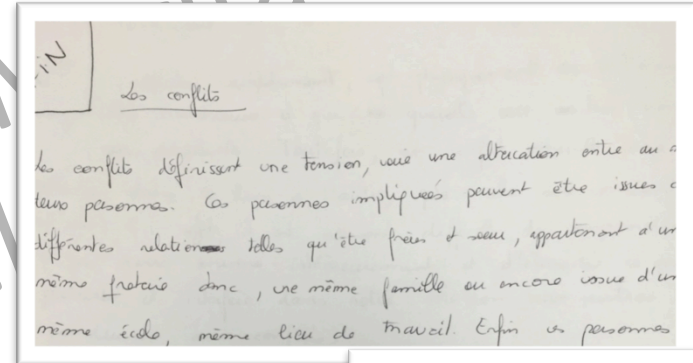 IN
Les conflits
Les conflits définissent une tension, voie une altercation entre au
deux personnes. Ces personnes impliquées peuvent être issues d
différentes relations telles qu'être frères et sœur, appartenant à un
même fratrie donc, une même famille ou encore issue d'un
même école, même lieu de travail. Enfin ces personnes